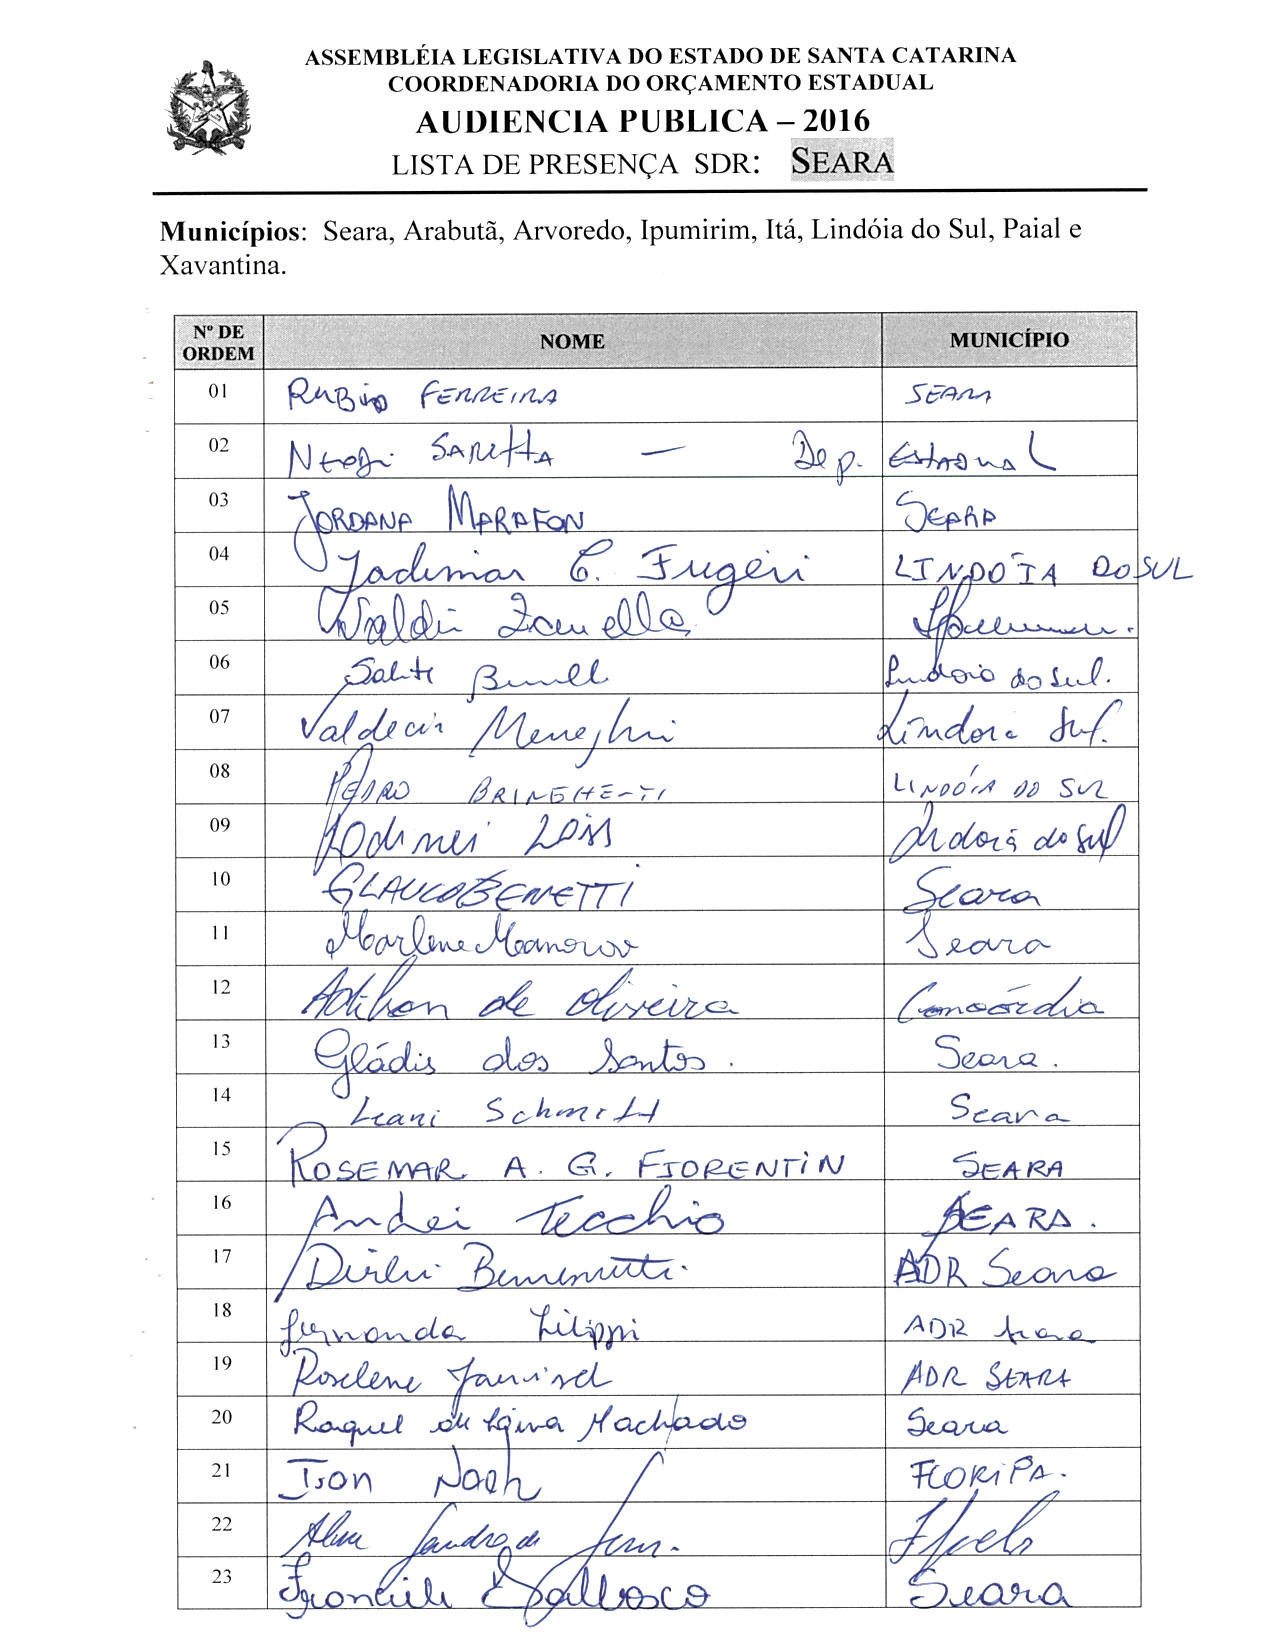 ASSEMBLÉIA LEGISLATIVA DO ESTADO DE SANTA CATARINA
COORDENADORIA DO ORÇAMENTO ESTADUAL
AUDIENCIA PUBLICA – 2016
LISTA DE PRESENÇA SDR: SEARA
Municípios: Seara, Arabutã, Arvoredo, Ipumirim, Itá, Lindóia do Sul, Paial e
Xavantina.
Nº DE ORDEM NOME MUNICÍPIO
01 RUBIO FERREIRA SEARA
02 Neodi SARETTA — Dep. Estadual
03 JORDANA MARAFON SEARA
04 Jademar C. Frigeri LINDÓIA DO SUL
05 Valdir Zanella
06 Lindoia do Sul.
07 Valdecir Meneghi Lindoia Sul.
08 PEDRO BRINGHETTI LINDÓIA DO SUL
09 Rodinei Lindoia do Sul
10 GLAUCO BENETTI Seara
11 Marlene Seara
12 Adilson de Oliveira Concórdia
13 Gládis dos Santos. Seara.
14 Leani Schmitt Seara
15 ROSEMAR A. G. FIORENTIN SEARA
16 Andrei Tecchio SEARA.
17 Dirlei ADR Seara
18 Fernanda Filippi ADR Seara
19 Roselene ADR SEARA
20 Raquel de Lima Machado Seara
21 FLORIPA.
22
23 Seara